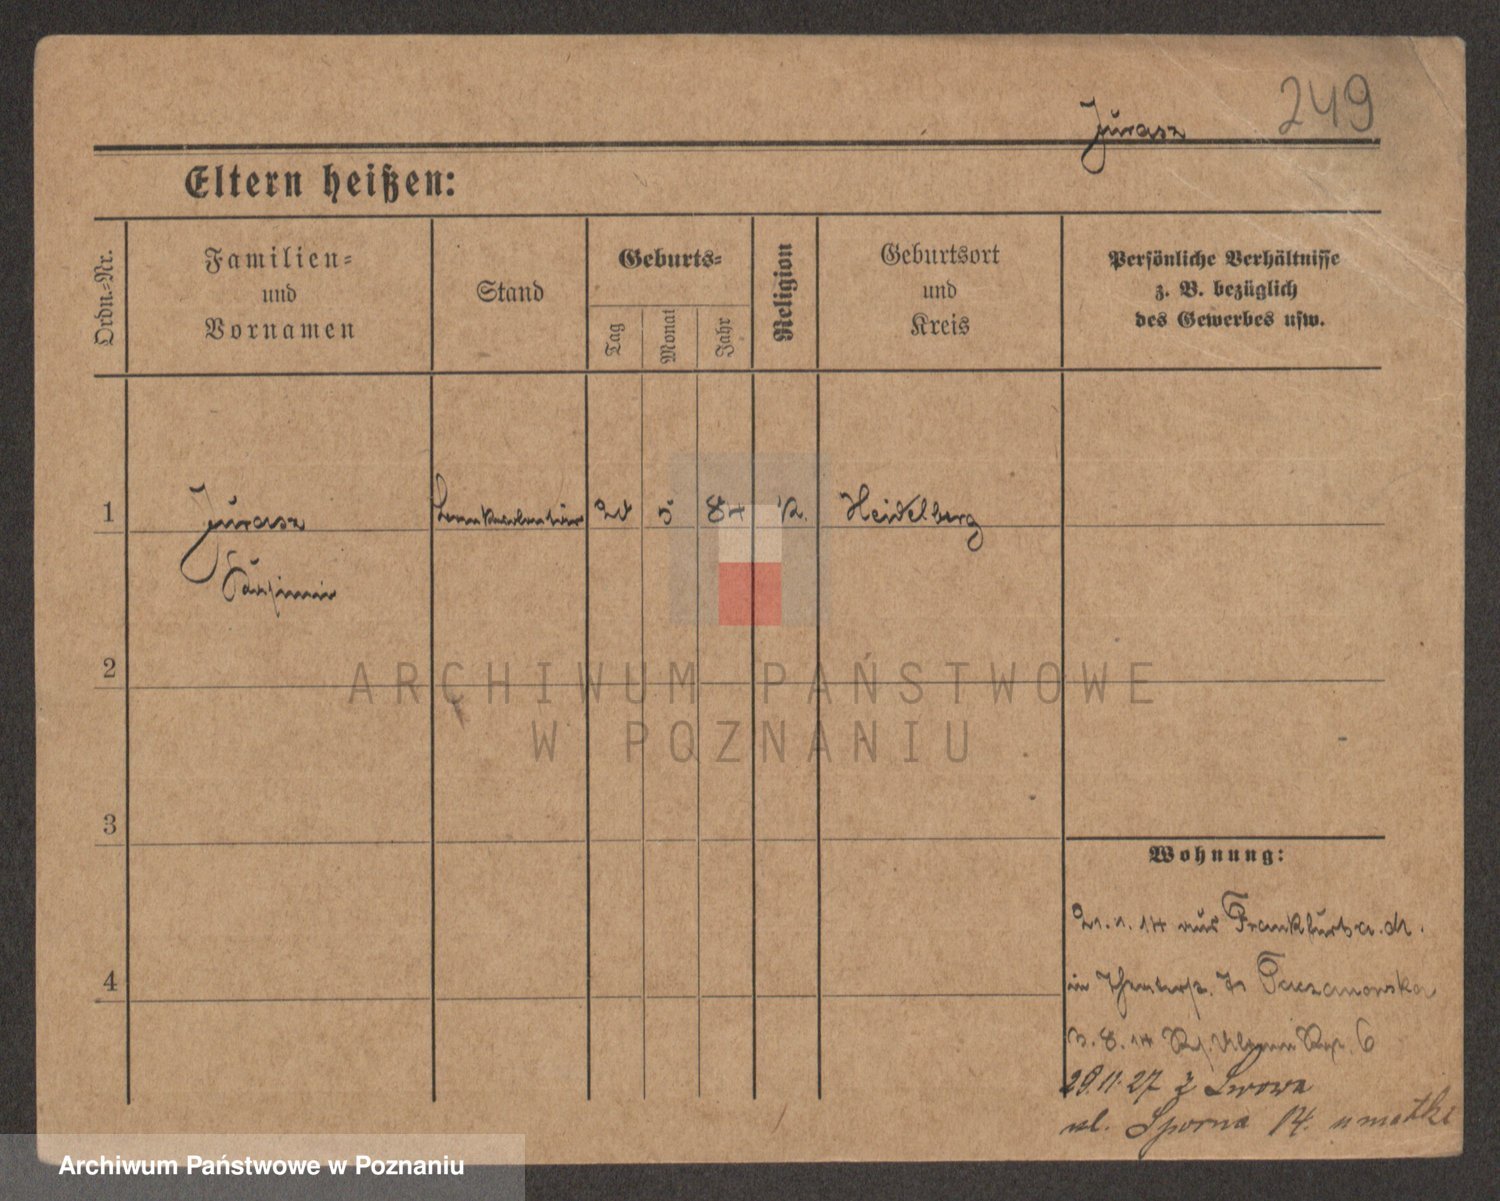 249
Jurasz
Eltern heißen:
Ordn.-Nr.
Familien-
und
Vornamen
Stand
Geburts-
Tag
Monat
Jahr
Religion
Geburtsort
und
Kreis
Persönliche Verhältnisse
z. B. bezüglich
des Gewerbes usw.
1
Jurasz
Kasimir
5
84
K.
Heidelberg
2
ARCHIWUM PAŃSTWOWE
W POZNANIU
3
Wohnung:
21.1.14 aus Frankfurt a. M.
4
in Taczanowska
3.8.14 6
29.11.27 z Lwowa
ul. Sporna 14. u matki
Archiwum Państwowe w Poznaniu